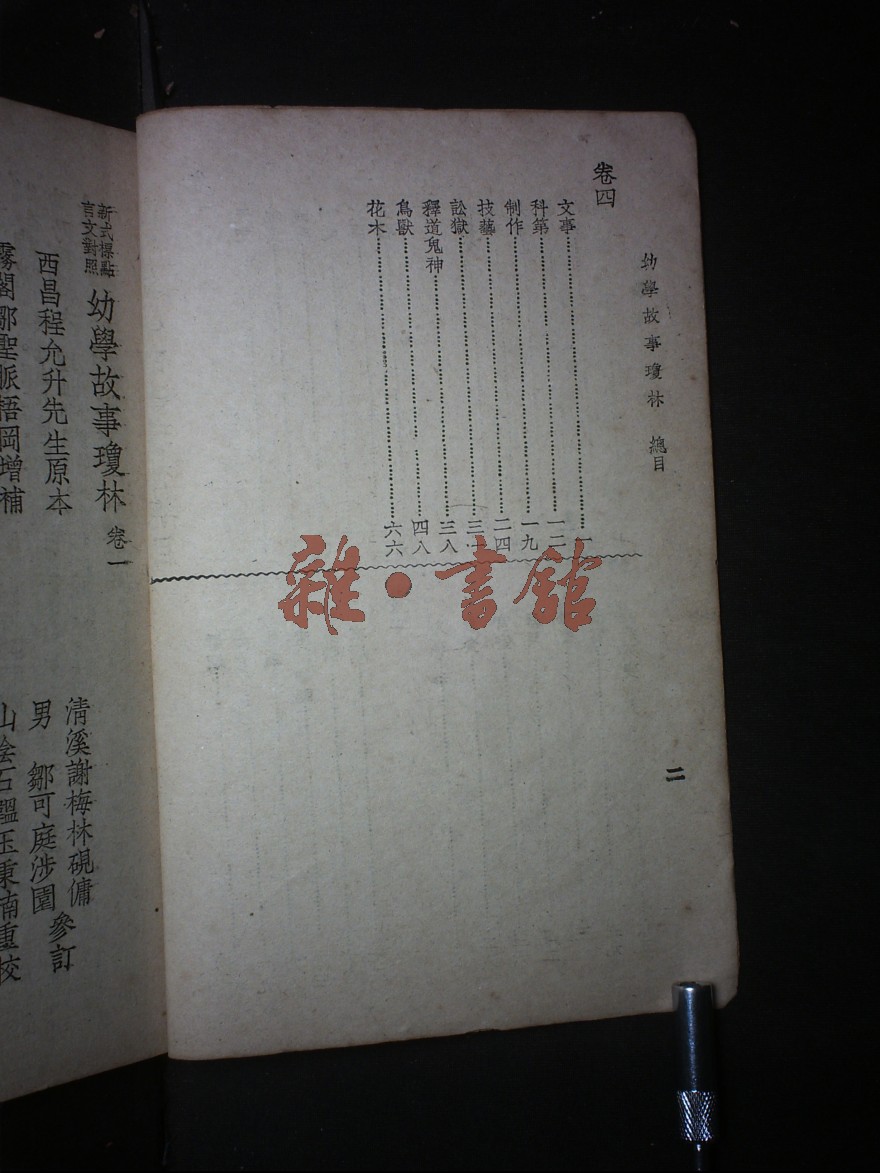 幼學故事瓊林 總目
二
卷四
文事⋯⋯一
科第⋯⋯一二
制作⋯⋯一九
技藝⋯⋯二四
訟獄⋯⋯三一
釋道鬼神⋯⋯三八
鳥獸⋯⋯四八
花木⋯⋯六六
雜·書館
新式標點
言文對照
幼學故事瓊林 卷一
西昌程允升先生原本
霧閣鄒聖脈梧岡增補
清溪謝梅林硯傭
男 鄒可庭涉園
參訂
山陰石韞玉秉楠重校